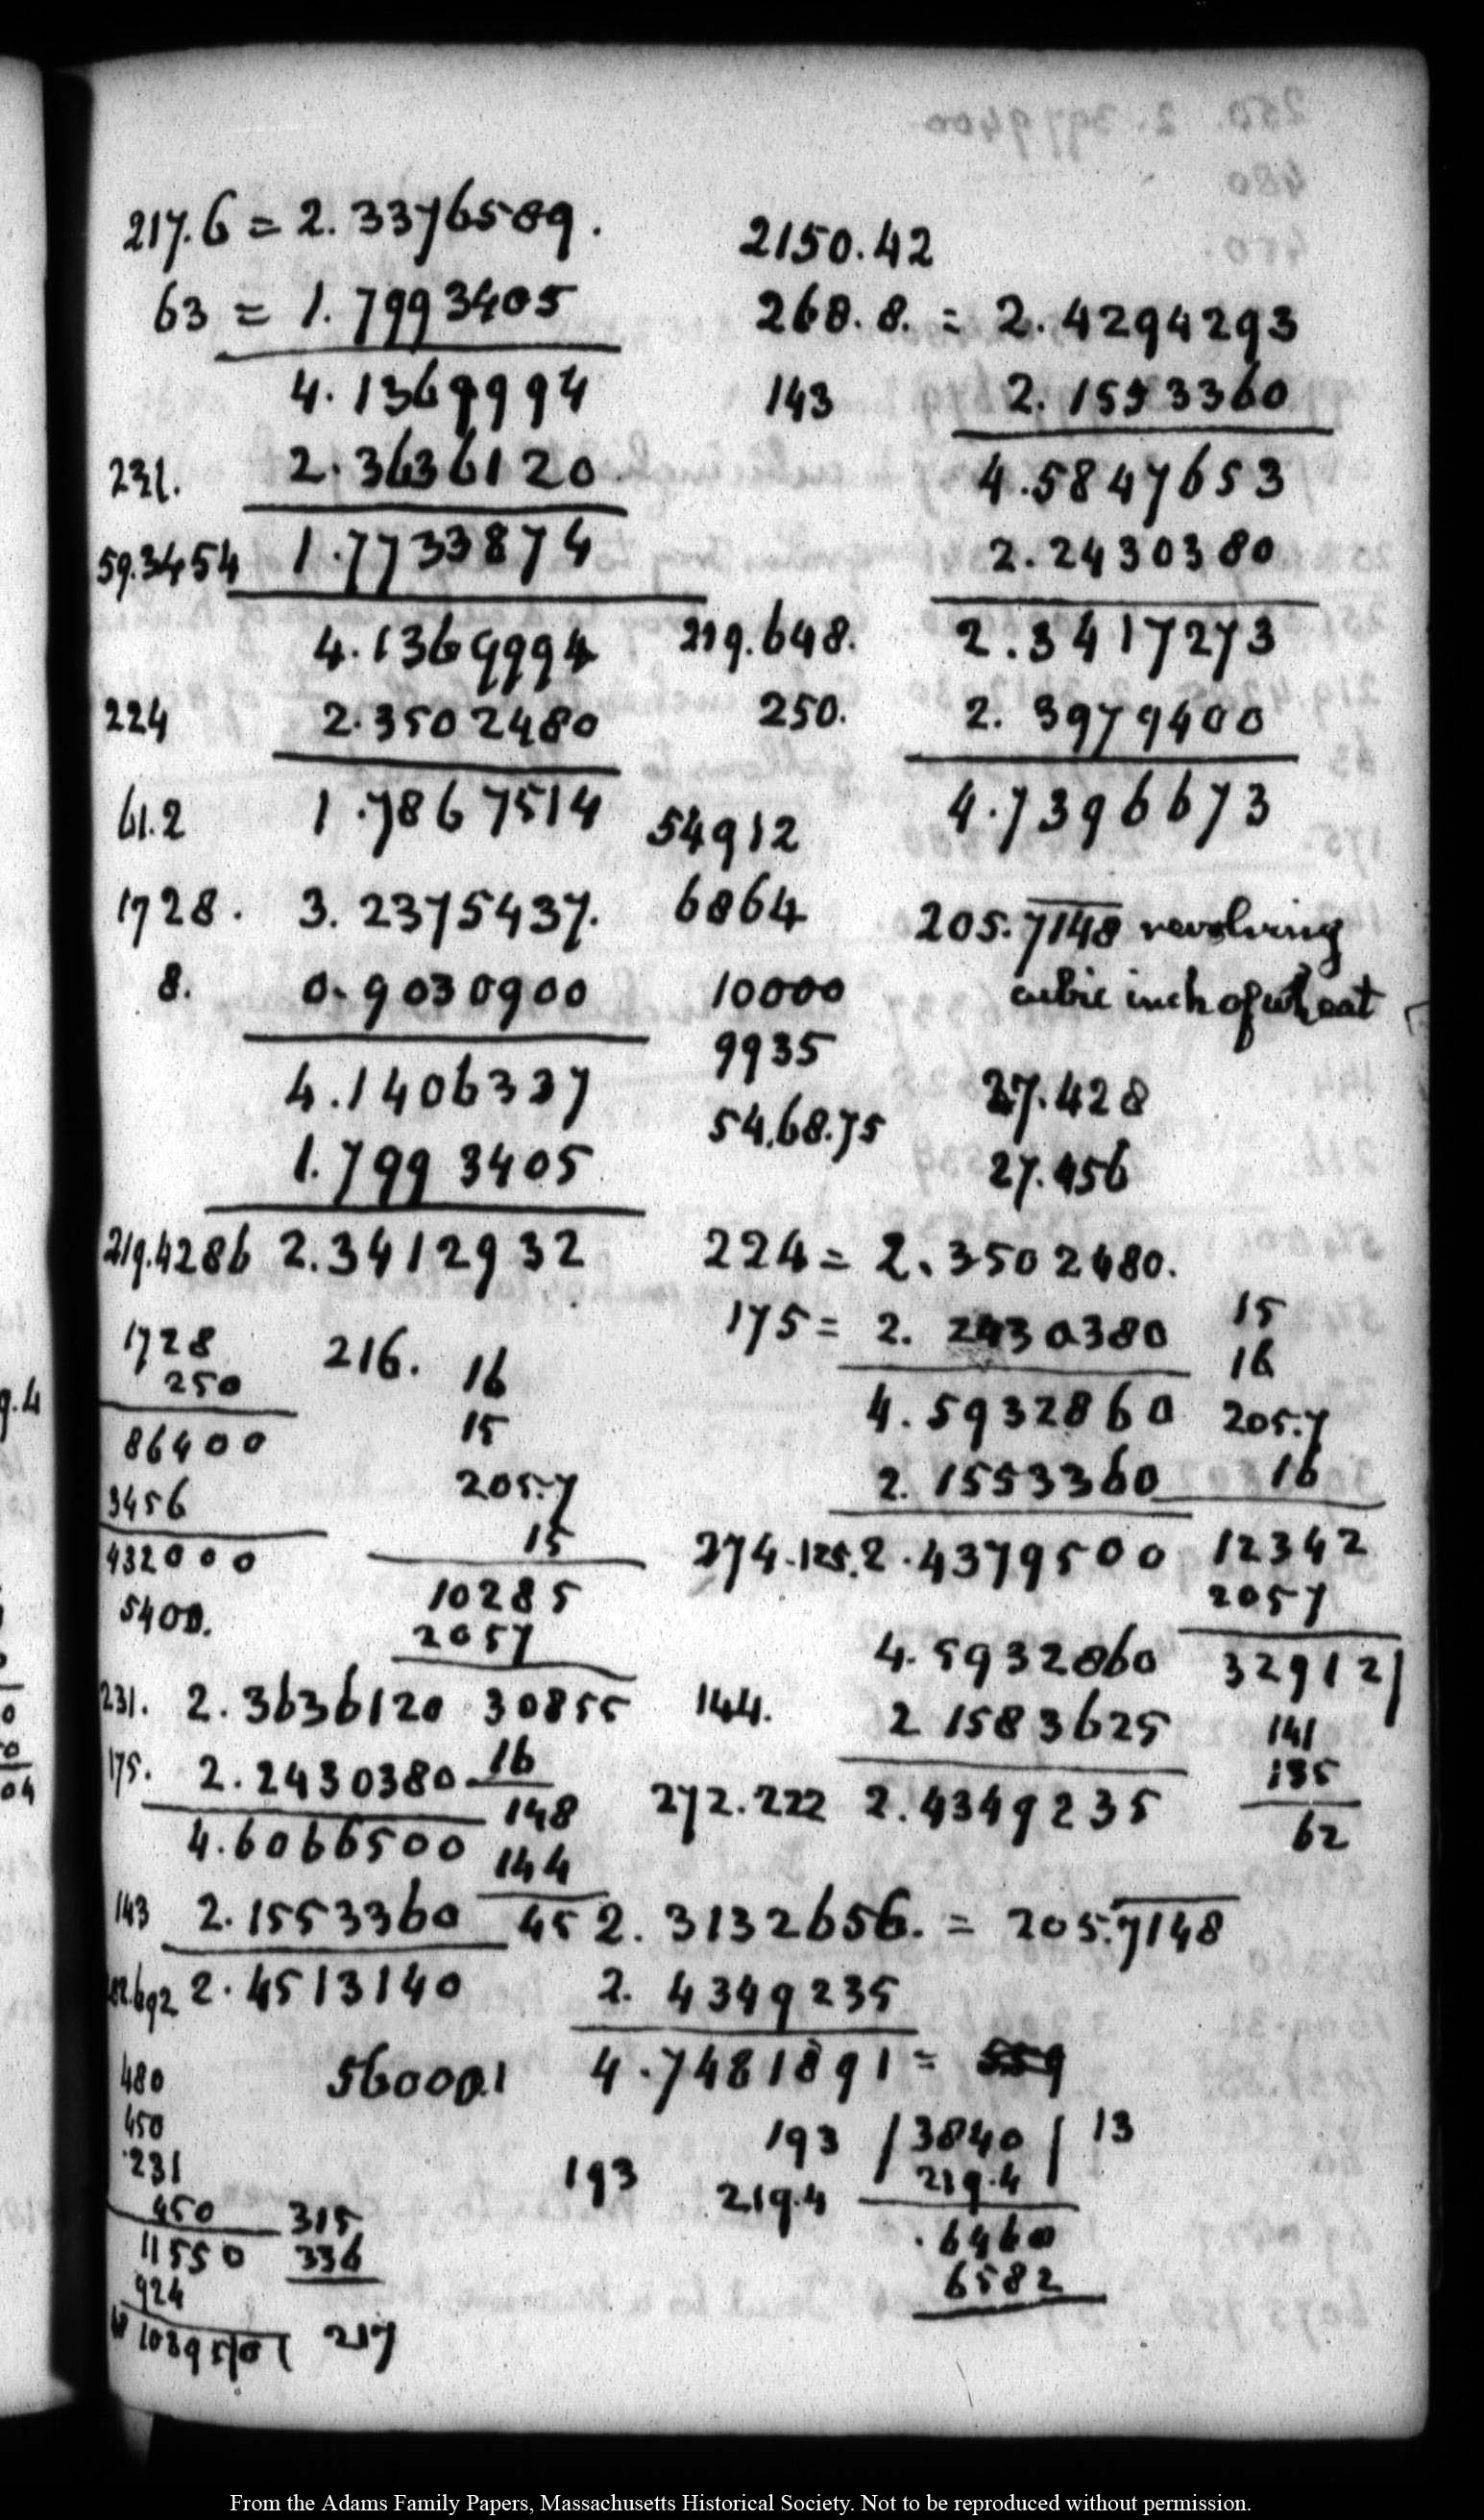 217.6 = 2.3376589.
63 = 1.7993405
4.1369994
231. 2.3636120
59.3454 1.7733874
4.1369994
224 2.3502480
61.2 1.7867514
1728. 3.2375437.
8. 0.9030900
4.1406337
1.7993405
219.4286 2.3412932
1728
250
86400
3456
432000
5400.
216.
16
15
205.7
15
10285
2057
30855
16
148
144
45
231. 2.3636120
175. 2.2430380
4.6066500
143 2.1553360
2.4513140
480
450
231
450
11550
924
315
336
217
560001
2150.42
268.8. = 2.4294293
143 2.1553360
4.5847653
2.2430380
219.648. 2.3417273
250. 2.3979400
54912 4.7396673
6864
10000
9935
54.68.75
205.7148 revolving
cubic inch of wheat
27.428
27.456
224 = 2.3502480.
175 = 2.2430380
4.5932860
2.1553360
274.125. 2.4379500
4.5932860
144. 2 1583625
272.222 2.4349235
15
16
205.7
16
12342
2057
32912
141
135
62
2.3132656. = 205.7148
2.4349235
4.7481891 = 559
193 / 3840 / 13
219.4
6460
6582
193
219.4
From the Adams Family Papers, Massachusetts Historical Society. Not to be reproduced without permission.